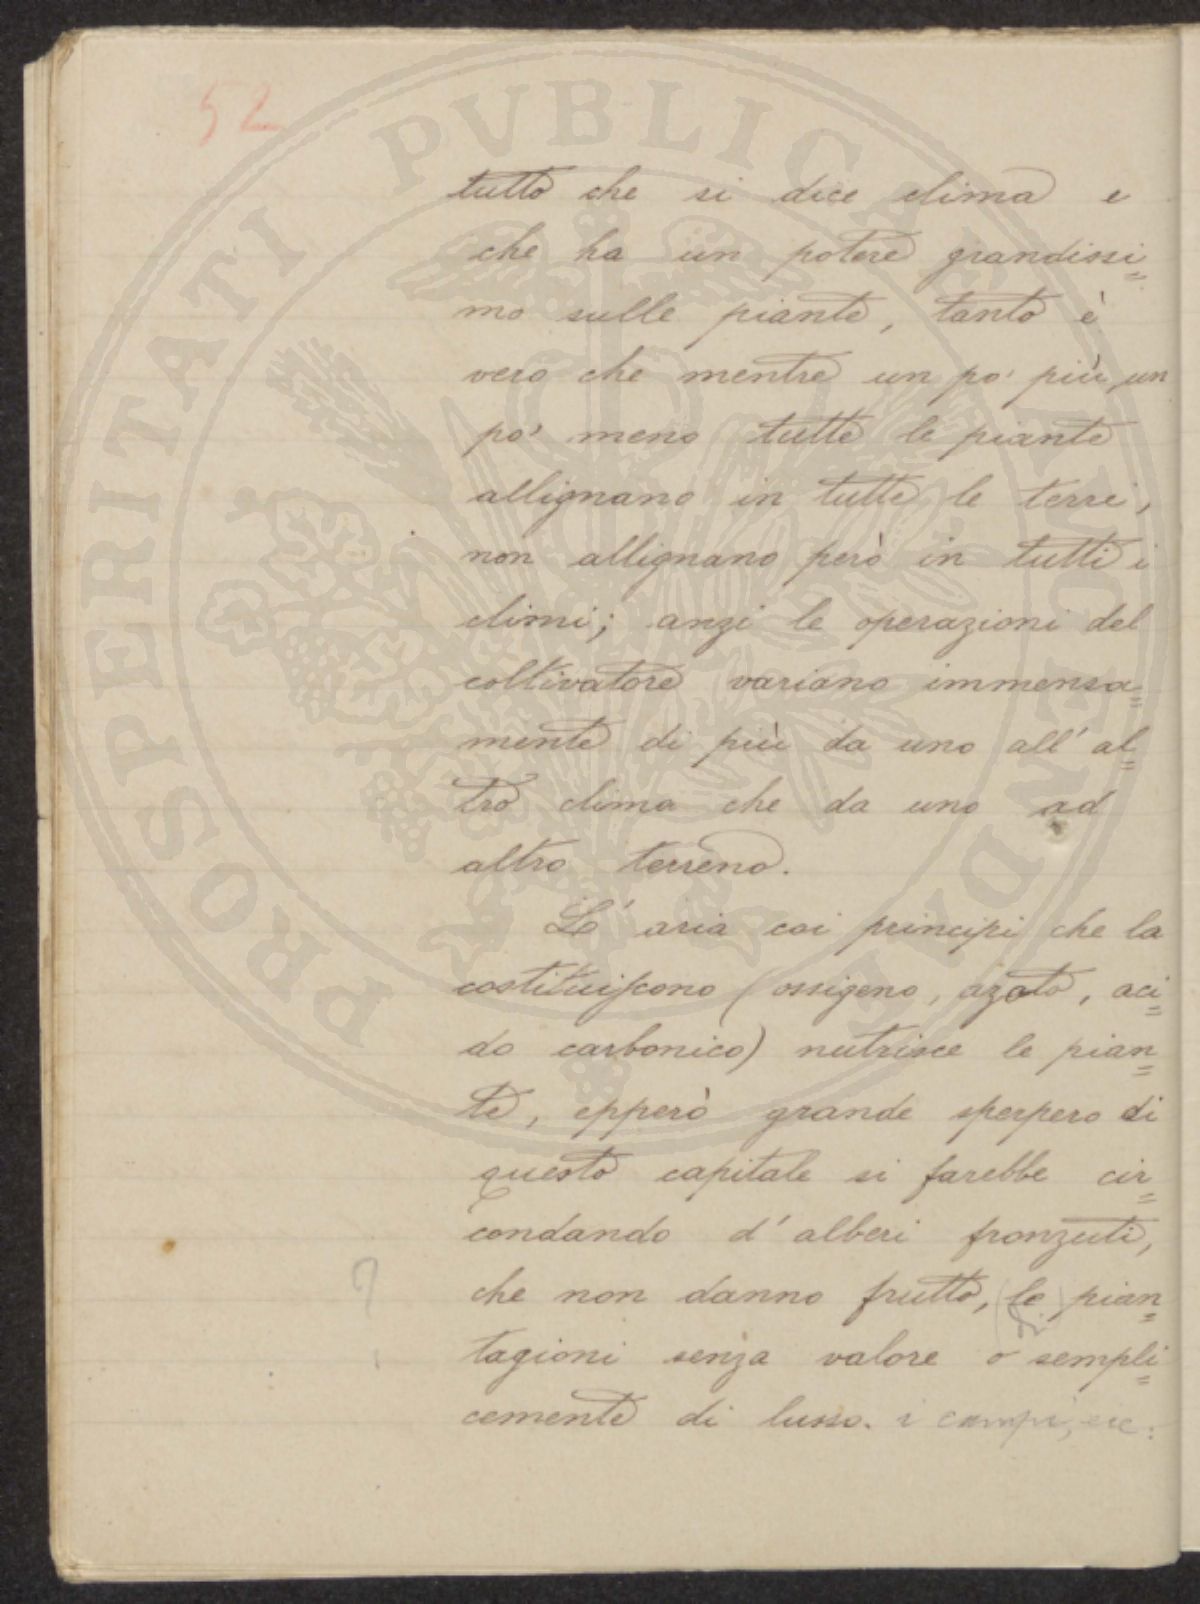 52
tutto che si dice clima e
che ha un potere grandissi=
mo sulle piante, tanto è
vero che mentre un po' più, un
po' meno tutte le piante
allignano in tutte le terre,
non allignano però in tutti i
climi; anzi le operazioni del
coltivatore variano immensa=
mente di più da uno all'al=
tro clima che da uno ad
altro terreno.
L'aria coi principi che la
costituiscono (ossigeno, azoto, aci=
do carbonico) nutrisce le pian=
te, epperò grande sperpero di
questo capitale si farebbe cir=
condando d'alberi fronzuti,
che non danno frutto, le pian=
di
tagioni senza valore o sempli=
cemente di lusso. i campi, ecc.
?
PROSPERITATI PVBLICAE AVGENDAE